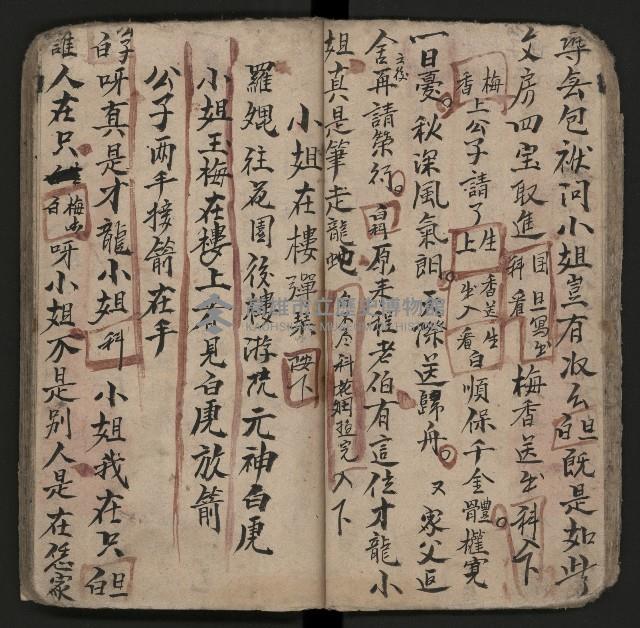 尋去包袱问小姐豈有以么白旦既是如此
文房四宝取進科看国旦寫出梅香送出科入下
梅香上公子請了生上香送生坐入看白順保千金體權寬
一日憂秋深風氣朗天際送歸舟又家父逗
舍再請榮行白科原来程老伯有這位才龍小
姐真是筆走龍蛇入下
小姐在樓彈琴唑下
羅娓往花園後樓游玩元神白虎
小姐玉梅在樓上看見白虎放箭
公子两手接箭在手
白呀真是才龍小姐科小姐我在只白旦
誰人在只白呀小姐不是别人是在恁家
高雄市立歷史博物館
KAOHSIUNG MUSEUM OF HISTORY